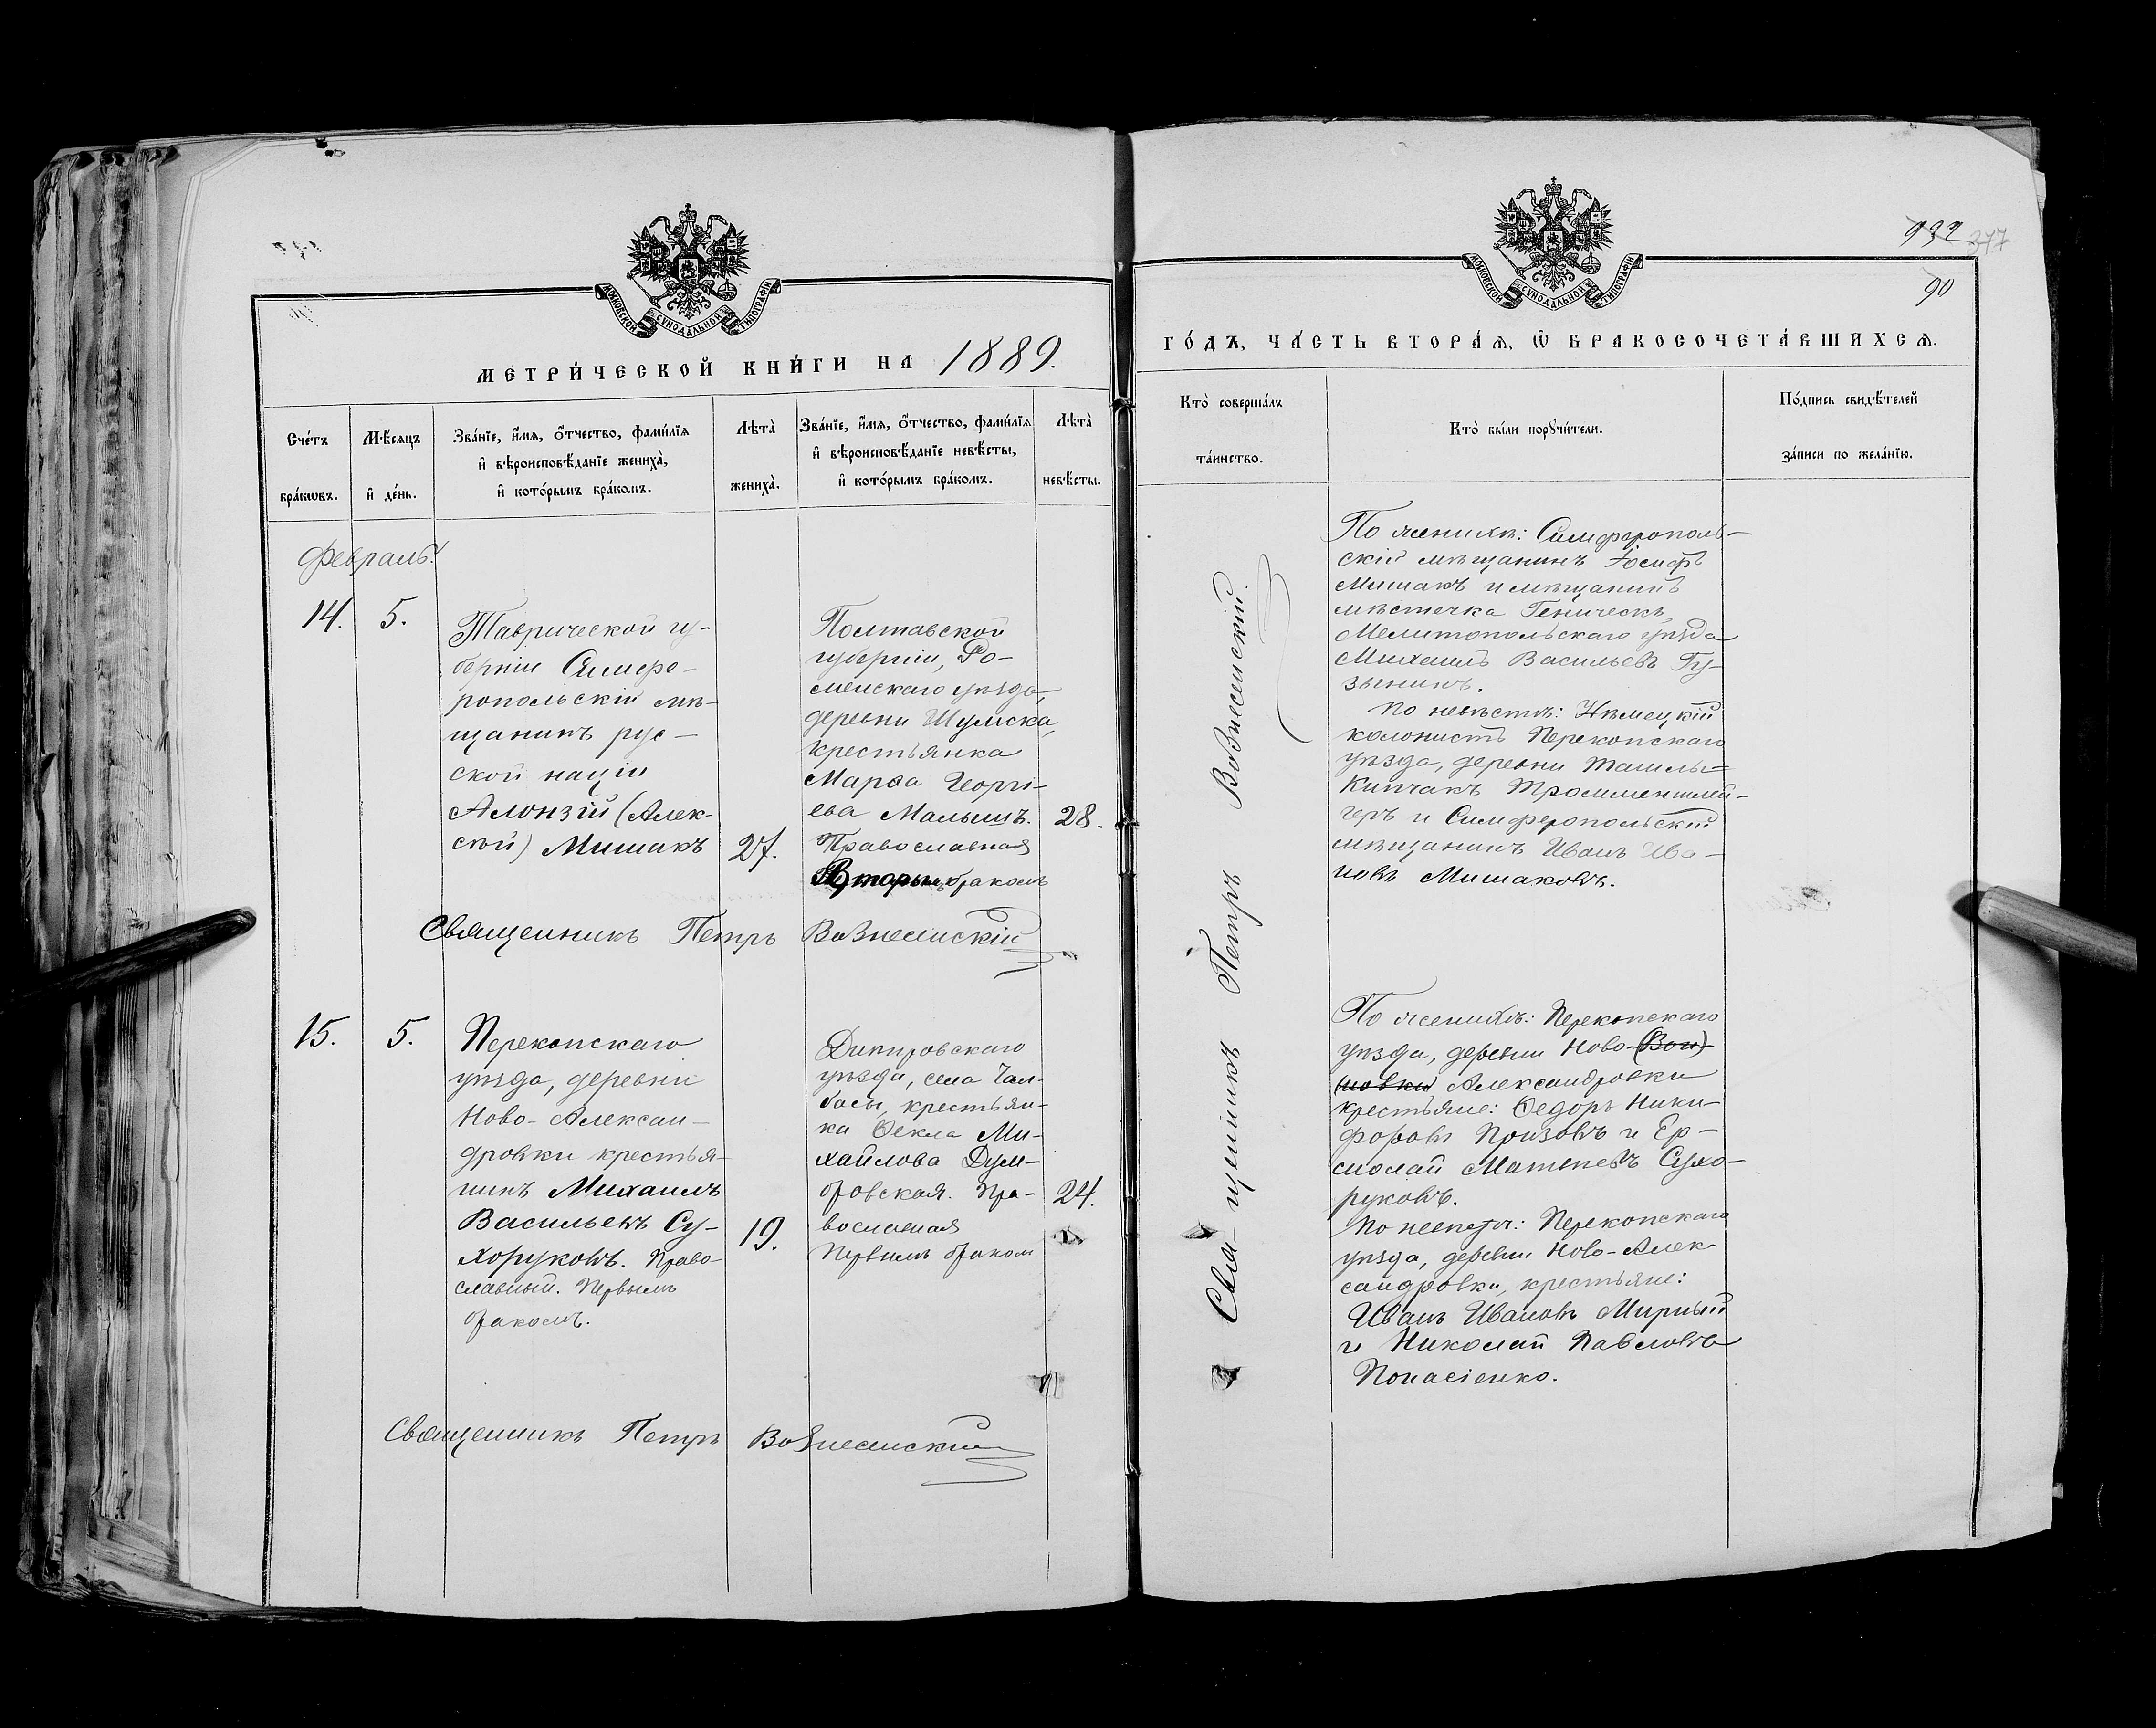 МОСКОВСКОЙ СѴНОДАЛЬНОЙ ТИПОГРАФІИ
МЕТРИ́ЧЕСКОЙ КНИ́ГИ НА 1889.
Сче́тъ
бра́кѡвъ.
Мѣ́сяцъ
и҆ де́нь.
Зва́нїе, и҆́мѧ, ѻ҆́тчество, фами́лїѧ
и҆ вѣроисповѣ́данїе жениха̀,
и҆ кото́рымъ бра́комъ.
Лѣта̀
жениха̀.
Зва́нїе, и҆́мѧ, ѻ҆́тчество, фами́лїѧ
и҆ вѣроисповѣ́данїе невѣ́сты,
и҆ кото́рымъ бра́комъ.
Лѣта̀
невѣ́сты.
Февраль.
14.
5.
Таврической гу-
берніи Симфе-
ропольскій мѣ-
щанинъ рус-
ской націи
Алонзій (Алек-
сѣй) Мишакъ
27.
Полтавской
губерніи, Ро-
менскаго уѣзда,
деревни Шумска,
крестьянка
Марѳа Георгі-
ева Малышъ.
Православная
Вторымъ бракомъ
28.
Священникъ Петръ Вознесенскій
15.
5.
Перекопскаго
уѣзда, деревни
Ново-Алексан-
дровки крестья-
нинъ Михаилъ
Васильевъ Су-
хоруковъ. Право-
славный. Первымъ
бракомъ.
19.
Днѣпровскаго
уѣзда, села Чал-
басы, крестьян-
ка Ѳекла Ми-
хайлова Дум-
бровская. Пра-
вославная
Первымъ бракомъ
24.
Священникъ Петръ Вознесенскій
МОСКОВСКОЙ СѴНОДАЛЬНОЙ ТИПОГРАФІИ
932 377
90
ГО́ДЪ, ЧА́СТЬ ВТОРА́Ѧ, Ѡ҆ БРАКОСОЧЕТА́ВШИХСѦ.
Кто̀ соверша́лъ
та́инство.
Кто̀ бы́ли порꙋчи́тели.
По́дпись свидѣ́телей
за́писи по жела́нїю.
Священникъ Петръ Вознесенскій
По женихѣ: Симферополь-
скій мѣщанинъ Іосифъ
Мишакъ и мѣщанинъ
мѣстечка Геническъ,
Мелитопольскаго уѣзда
Михаилъ Васильевъ Гу-
По невѣстѣ: Нѣмецкій
колонистъ Перекопскаго
уѣзда, деревни Ташлы-
Кипчакъ
геръ и Симферопольскій
мѣщанинъ Иванъ Ива-
новъ Мишаковъ.
По женихѣ: Перекопскаго
уѣзда, деревни Ново-
Александровки
крестьяне: Ѳедоръ Ники-
форовъ Призовъ и Ер-
молай Матвѣевъ Сухо-
руковъ.
По невѣстѣ: Перекопскаго
уѣзда, деревни Ново-Алек-
сандровки, крестьяне:
Иванъ Ивановъ Мирный
и Николай Павловъ
Понасіенко.